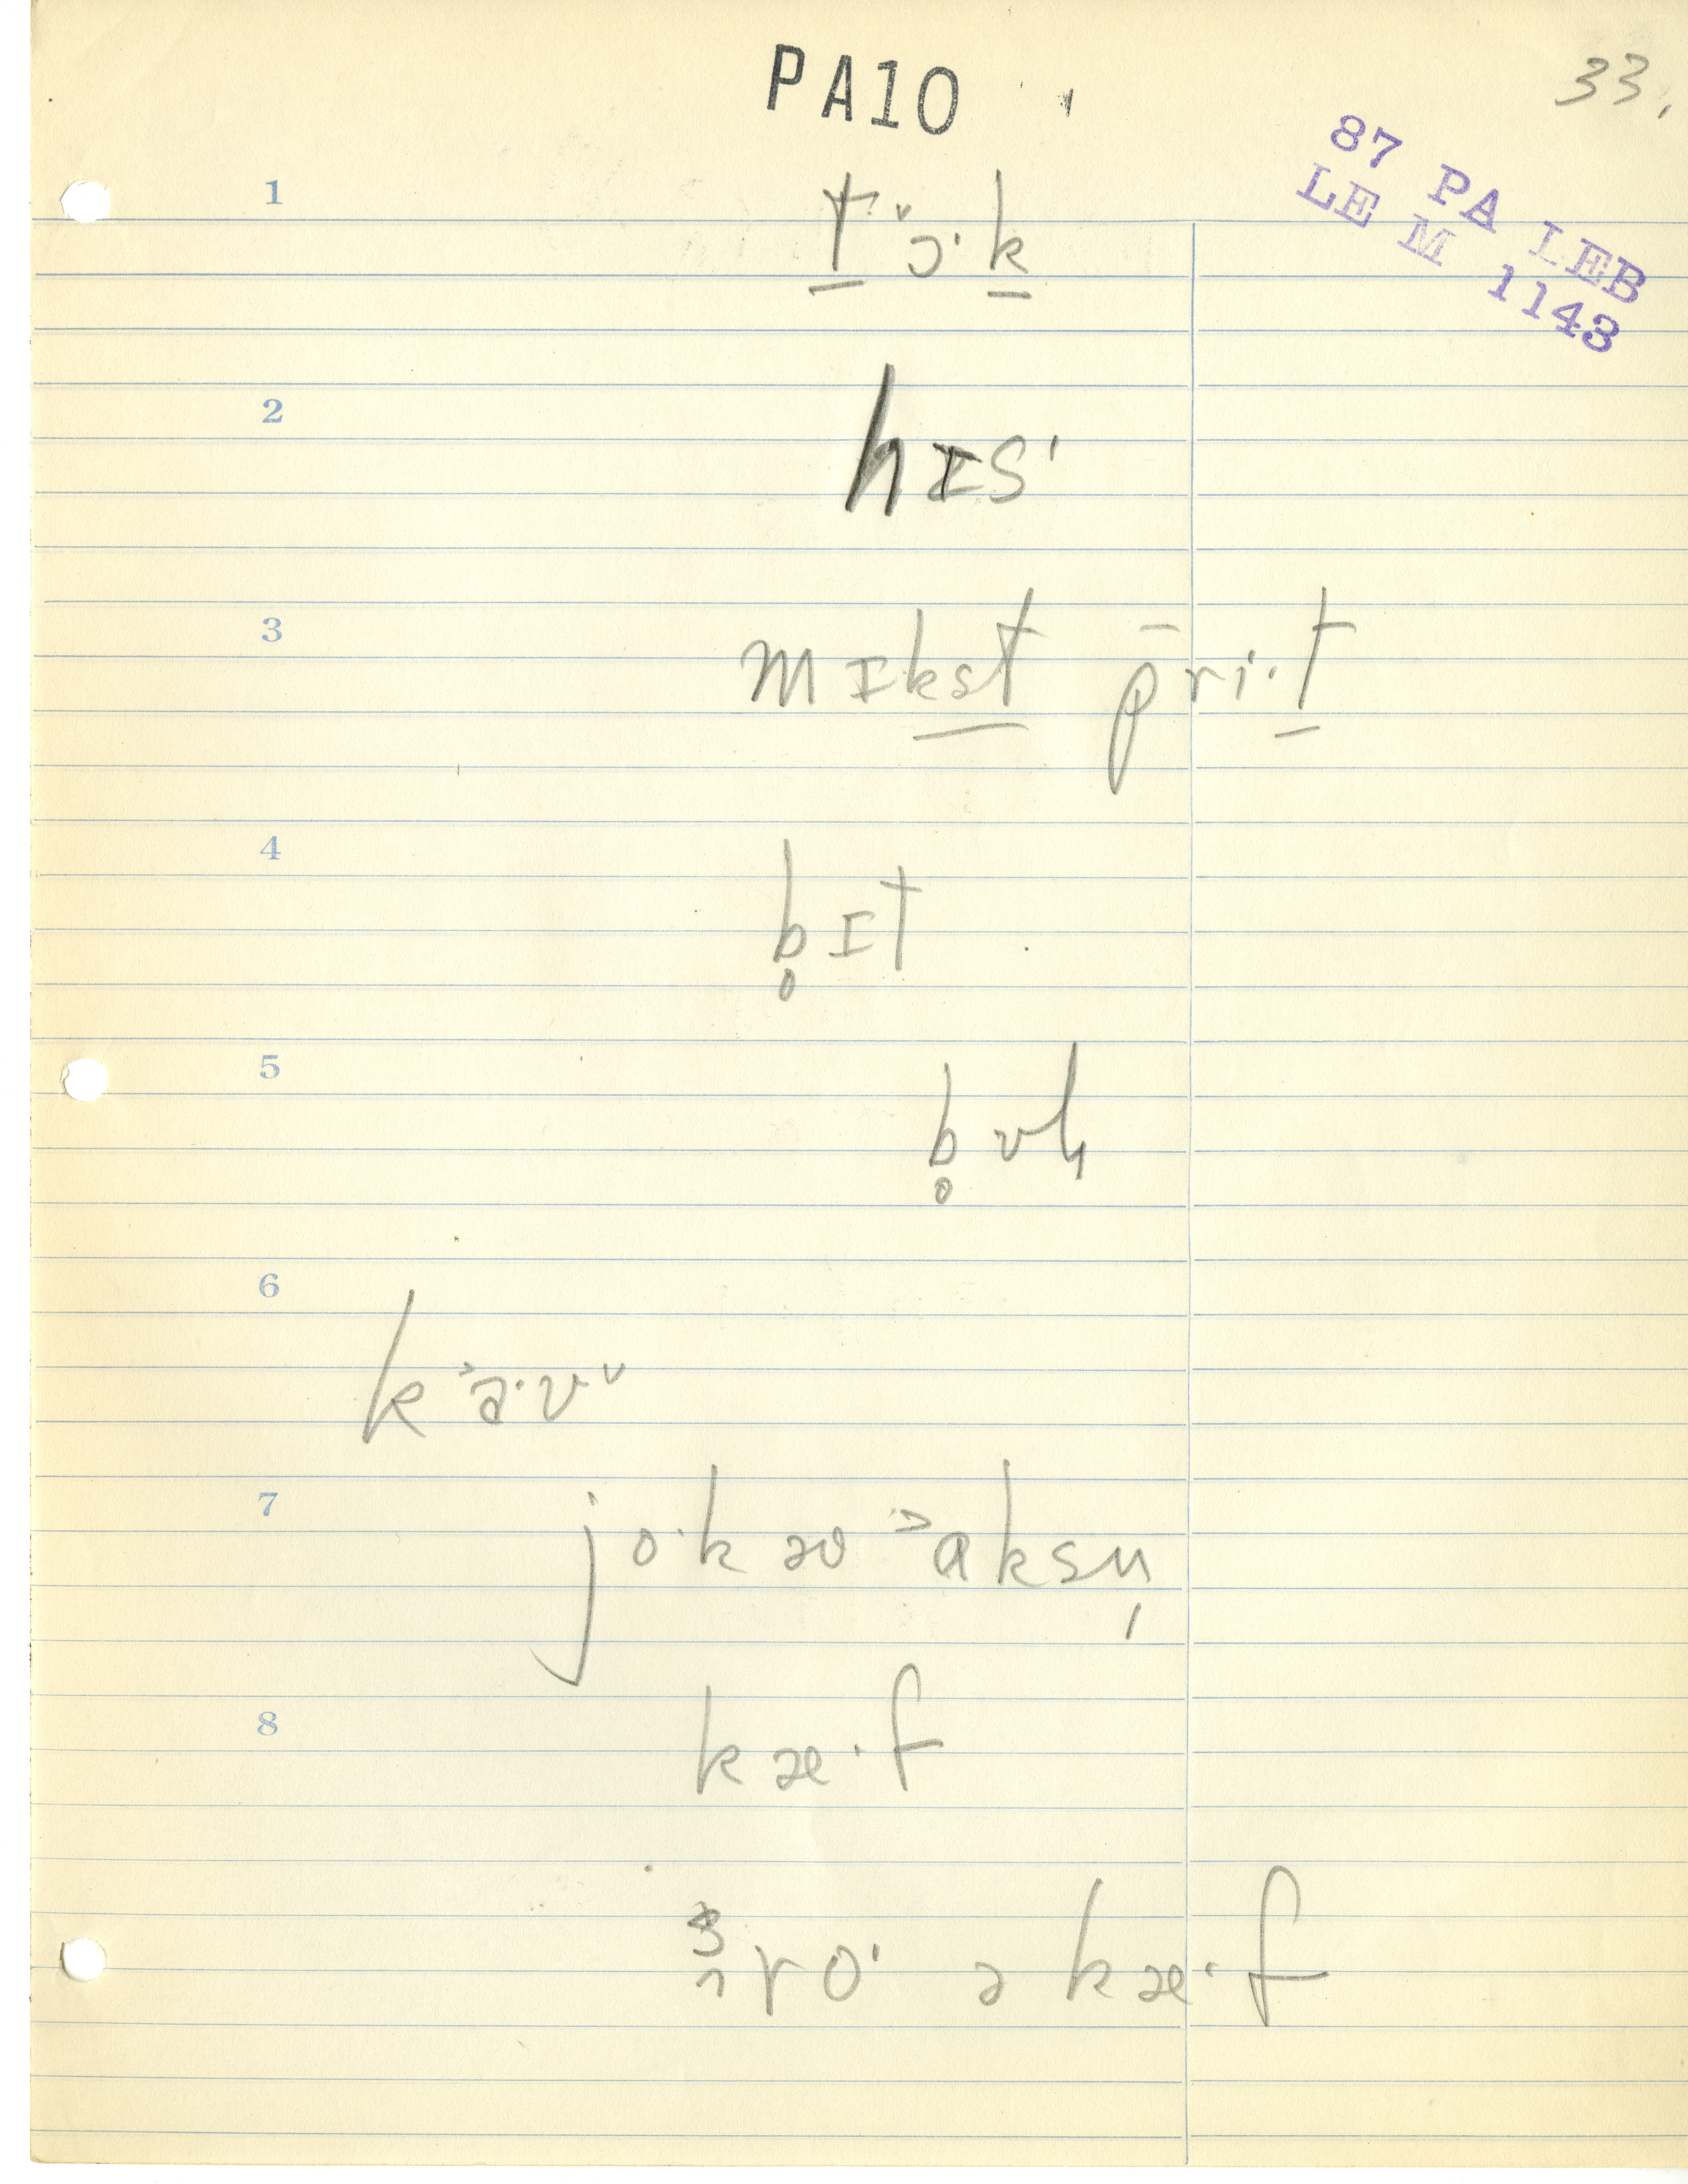 PA10
33.
87 PA LEB
LE M 1143
1
t̠ ˅ɔ·k̠
2
hɪsˈ
3
mɪk̠s̠t̠ p̄ri·t̠
4
b̥ɪt
5
b̥ʊɦ
6
k˃a·ʊ˅
7
jo·kəʊ ˃aksn̩
8
kæ·f
θro· ə kæ·f